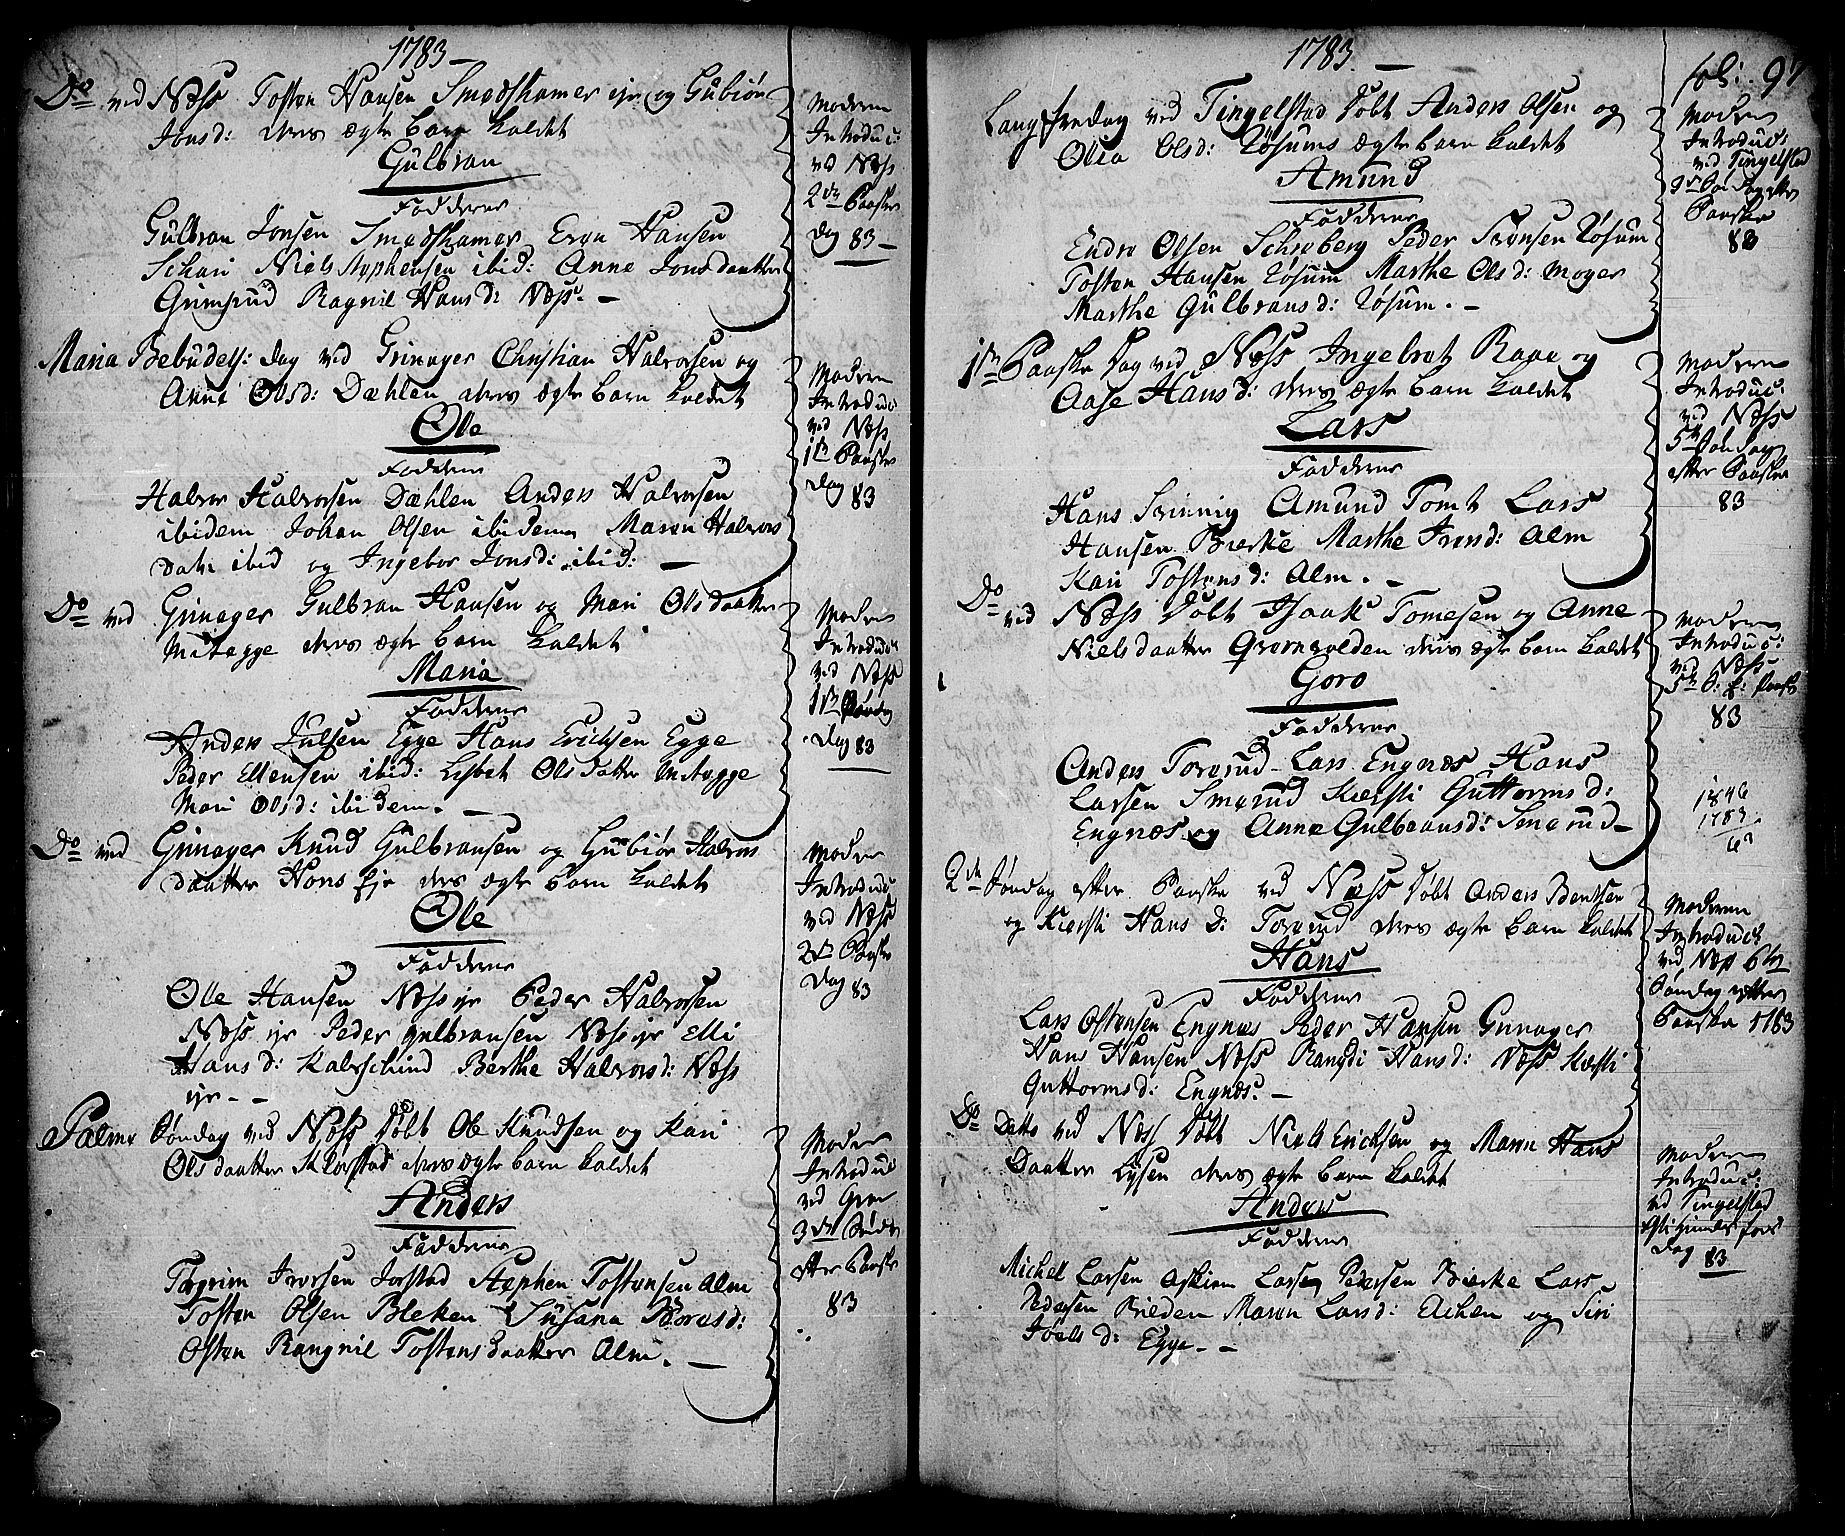 1783
Do ved Næss Tosten Hansen Smedshamer eje og Gubiør
Jonsd: deres ægte barn kaldet
Gulbran
Fadderne
Gulbran Jonsen Smedshamer Even Hansen
Schari Niels Stephensen ibid: Anne Jonsdaatter
Grimsrud Ragnil Hansd: Næss. -
Moderen
Introduc:
ved Næss
2den Paaske
dag 83 -
Maria Bebudels: dag ved Grinager Christian Halvorsen og
Anne Olsd: Dæhlen deres ægte barn kaldet
Ole
Fadderne
Halvor Halvorsen Dæhlen Anders Halvorsen
ibidem Johan Olsen ibidem Maren Halvors
Datr ibid og Ingebor Jonsd: ibid: -
Moderen
Introduc
ved Næss
1ste Paaske
dag 83
Do ved Grinager Gulbran Hansen og Mari Olsdaatter
Mitegge deres ægte barn kaldet
Maria
Fadderne
Anders Julsen Egge Hans Erichsen Egge
Peder Ellensen ibid: Lisbet Olsdatter Mitegge
Mari Olsd: ibidem. -
Moderen
Introduc
ved Næss
1ste
Dag 83
Do ved Grinager Knud Gulbransen og Gubiør Halvors
daatter Hons Eje deres ægte barn kaldet
Ole
Fadderne
Ole Hansen Næss eje Peder Halvorsen
Næss eje Peder Gulbransen Næss eje Elli
Hansd: Kalvschind Berthe Halvorsd: Næss
eje - -
Moderen
Introduc
ved Næss
2den Paaske
Dag 83
Palme Søndag ved Næss døbt Ole Knudsen og Kari
Olsdaatter Klæstad deres ægte barn kaldet
Anders
Fadderne
Torgrim Iversen Jorstad Stephen Tostensen Alm
Tosten Olsen Bleken Susana
Osten Rangnil Tostensdaatter Alm. -
Moderen
Introduc
ved Gran
3die Sønd:
efter Paaske
83
1783 -
fol: 97
Langfredag ved Tingelstad døbt Anders Olsen og
Olia Olsd: Røsums ægte barn kaldet
Amund
Fadderne
Endre Olsen Schreberg Peder Svensen Røsum
Tosten Hansen Røsum Marthe Olsd: Moger
Marthe Gulbransd: Røsum. -
Moderen
Introduc:
ved Tingelstad
2d Søndag efter
Paaske
83
1ste Paaske Dag ved Næss Ingebret Raae og
Aase Hansd: deres ægte barn kaldet
Lars
Fadderne
Hans Amund Tomt Lars
Hansen Bierke Marthe Iversd: Alm
Kari Tostensd: Alm. -
Moderen
Introduc:
ved Næss
5te Søndag
efter Paaske
83
Do ved Næss Døbt Isaak Tomesen og Anne
Nielsdaatter Grønevolden deres ægte barn kaldet
Goro
Fadderne
Anders Torerud Lars Engnæs Hans
Larsen Smerud Kiersti Guttormsd:
Engnæs og Anne Gulbransd: Smerud -
Moderen
Introduc:
ved Næss
5te S: e: Paaske
83
1846
1783
63
2den Søndag efter Paaske ved Næss Døbt Anders Bentsen
og Kiersti Hans D: Torerud deres ægte barn kaldet
Hans
Fadderne
Lars Ostensen Engnæs Peder Hansen Grinager
Hans Hansen Næss Rangdi Hansd: Næss Kiersti
Guttormsd: Engnæs. -
Moderen
Introduc:
ved Næss 6te
Søndag efter
Paaske 1783
Do Detto ved Næss Døbt Niels Erichsen og Maren Hans
Daatter Lysen deres ægte barn kaldet
Anders
Fadderne
Michel Larsen Askiem Larsen Pedersen Bierke Lars
Pedersen Brieden Maren Larsd: Achen og Siri
Joelsd: Egge. - -
Moderen
Introduc:
ved Tingelstad
Christi Himmelfarts
Dag 83